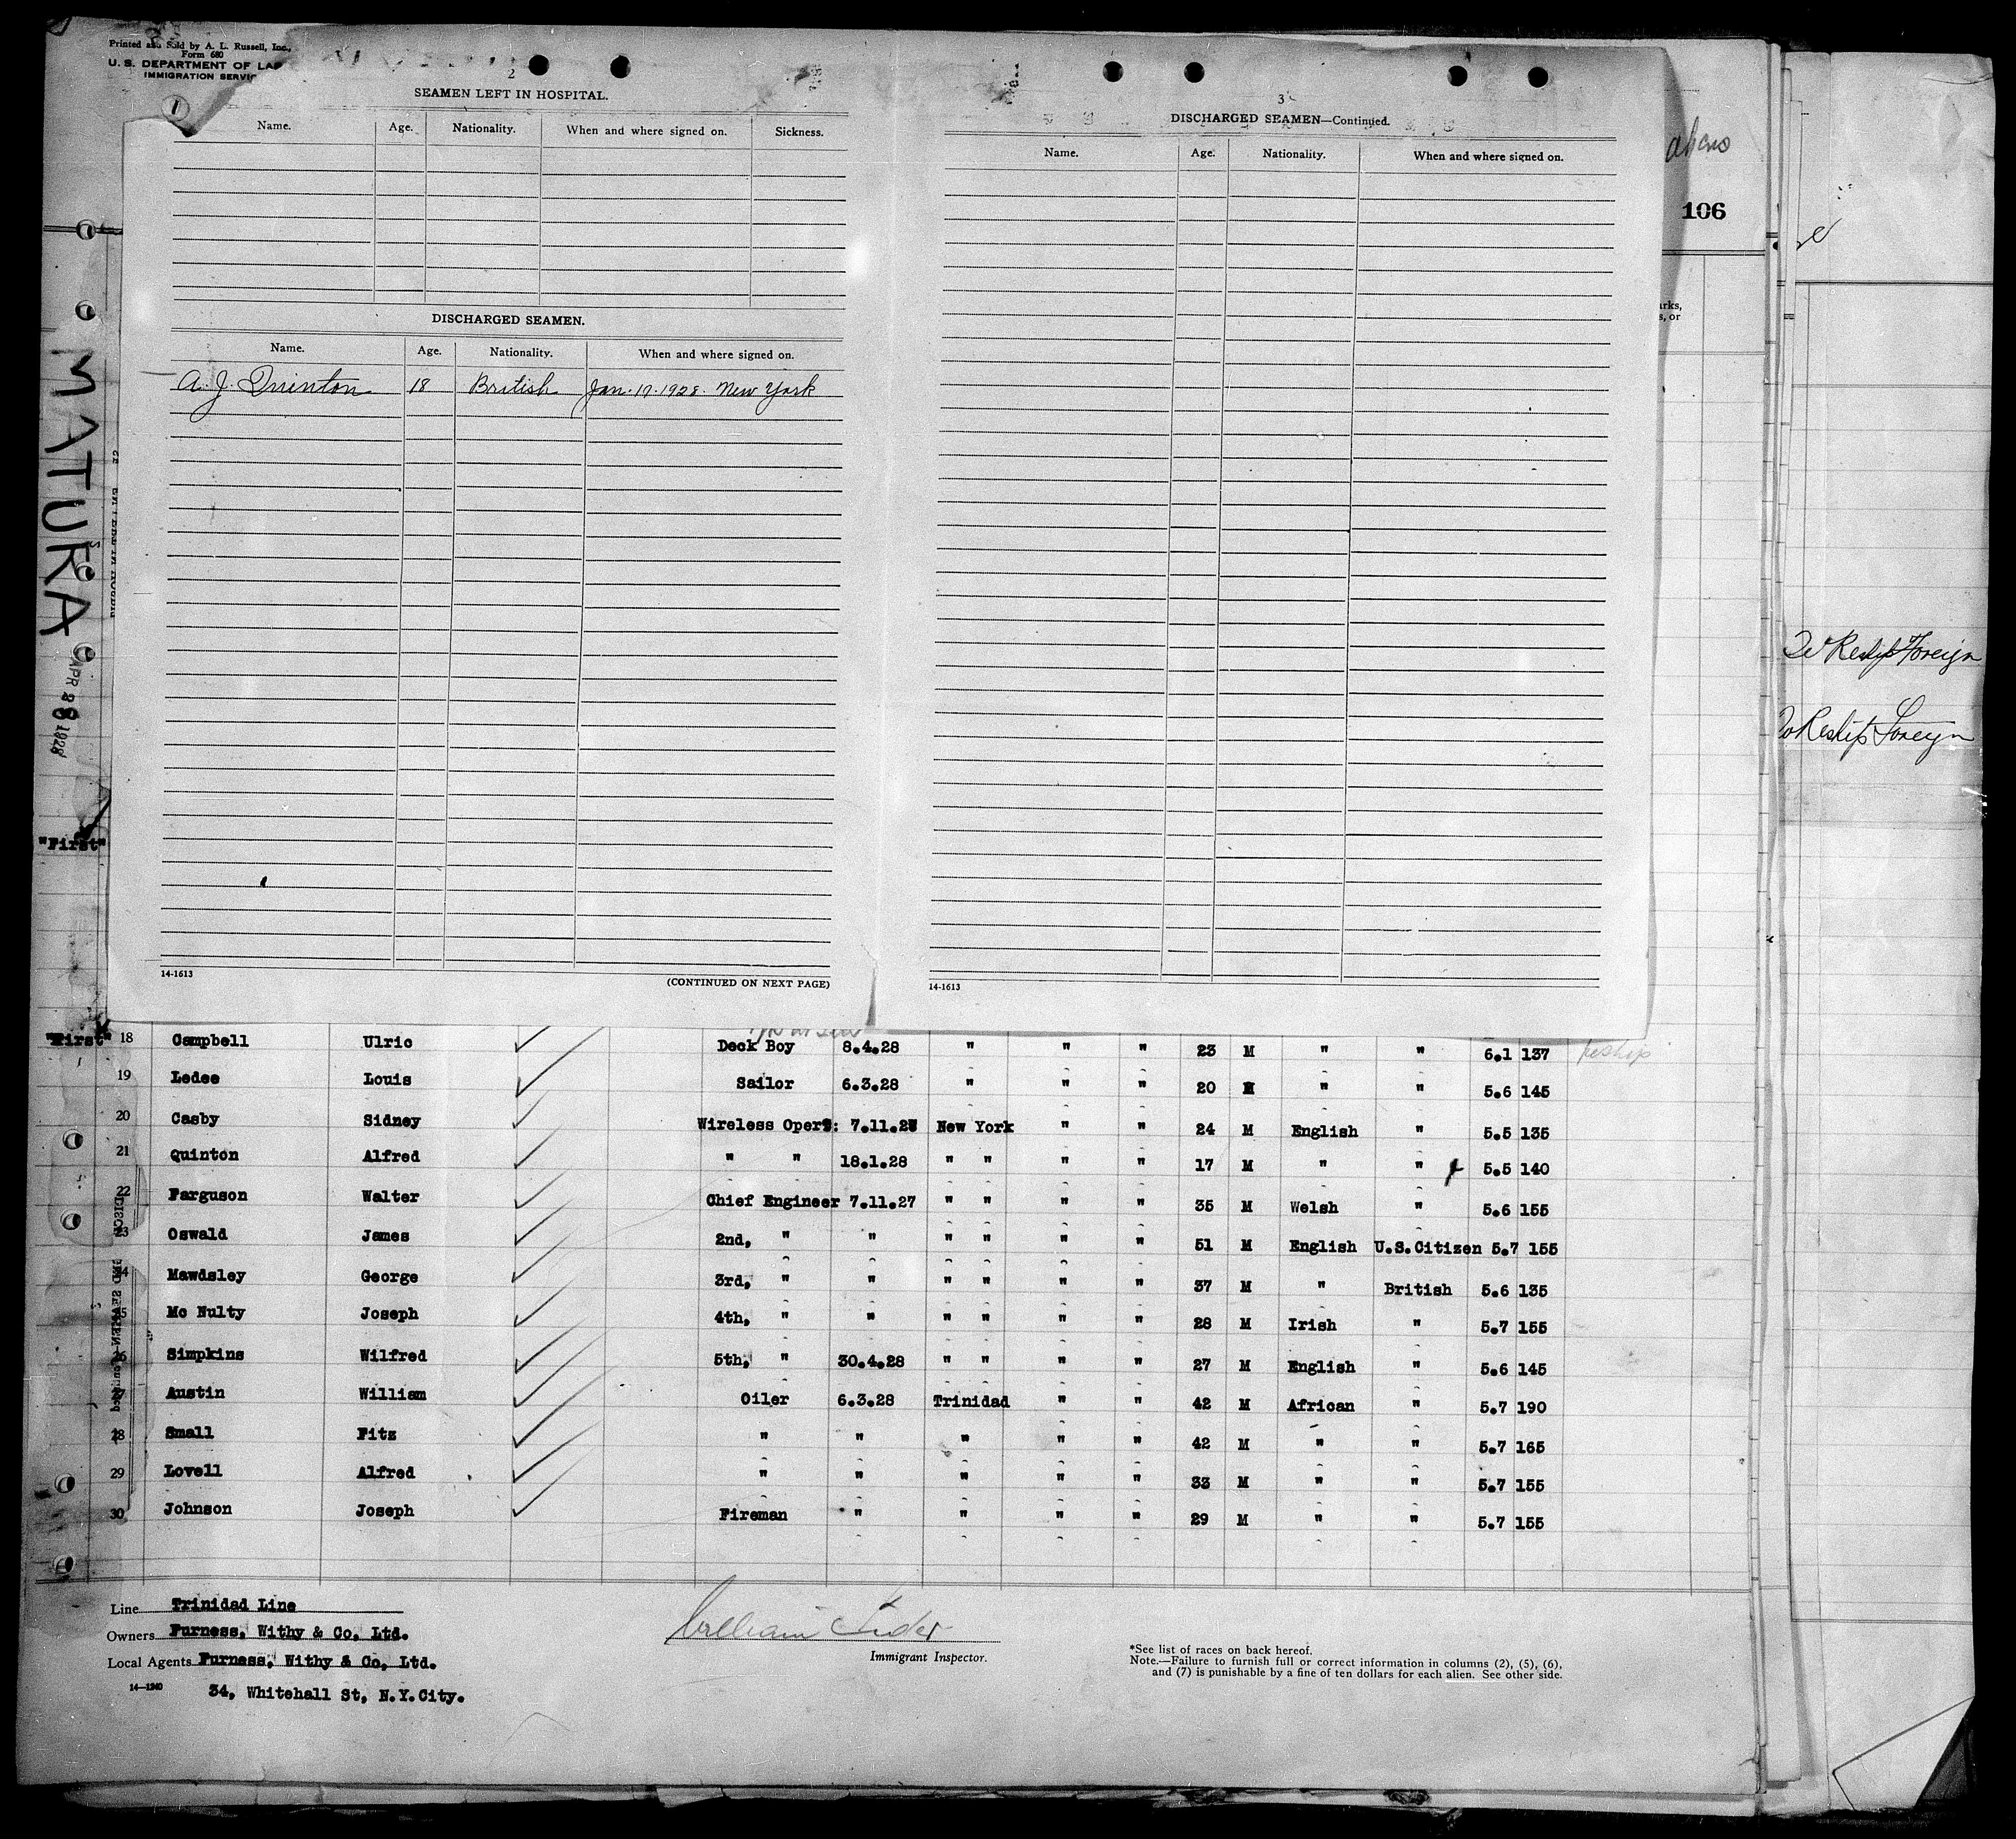 Printed and Sold by A. L. Russell, Inc.,
Form 680
U. S. DEPARTMENT OF LA
IMMIGRATION SERVIC
1
2
SEAMEN LEFT IN HOSPITAL.
Name. Age. Nationality. When and where signed on. Sickness.
DISCHARGED SEAMEN.
Name. Age. Nationality. When and where signed on.
A. J. Quinton 18 British Jan. 17. 1928. New York
14-1613
(CONTINUED ON NEXT PAGE)
3
DISCHARGED SEAMEN—Continued.
Name. Age. Nationality. When and where signed on.
14-1613
106
arks,
s, or
To Reship Foreign
To Reship Foreign
MATURA
APR 28 1928
"First"
"First" 18 Campbell Ulric Deck Boy 8.4.28 " " " 23 M " " 6.1 137 Reship
19 Ledee Louis Sailor 6.3.28 " " " 20 M " " 5.6 145
20 Casby Sidney Wireless Opert: 7.11.27 New York " " 24 M English " 5.5 135
21 Quinton Alfred " " 18.1.28 " " " " 17 M " " 5.5 140
22 Farguson Walter Chief Engineer 7.11.27 " " " " 35 M Welsh " 5.6 155
23 Oswald James 2nd, " " " " " " 51 M English U.S.Citizen 5.7 155
24 Mawdsley George 3rd, " " " " " " 37 M " British 5.6 135
25 Mc Nulty Joseph 4th, " " " " " " 28 M Irish " 5.7 155
26 Simpkins Wilfred 5th, " 30.4.28 " " " " 27 M English " 5.6 145
27 Austin William Oiler 6.3.28 Trinidad " " 42 M African " 5.7 190
28 Small Fitz " " " " " 42 M " " 5.7 165
29 Lovell Alfred " " " " " 33 M " " 5.7 155
30 Johnson Joseph Fireman " " " " 29 M " " 5.7 155
Line Trinidad Line
Owners Furness, Withy & Co, Ltd.
Local Agents Furness, Withy & Co, Ltd.
14—1240
34, Whitehall St, N.Y.City.
William
Immigrant Inspector.
*See list of races on back hereof.
Note.—Failure to furnish full or correct information in columns (2), (5), (6),
and (7) is punishable by a fine of ten dollars for each alien. See other side.